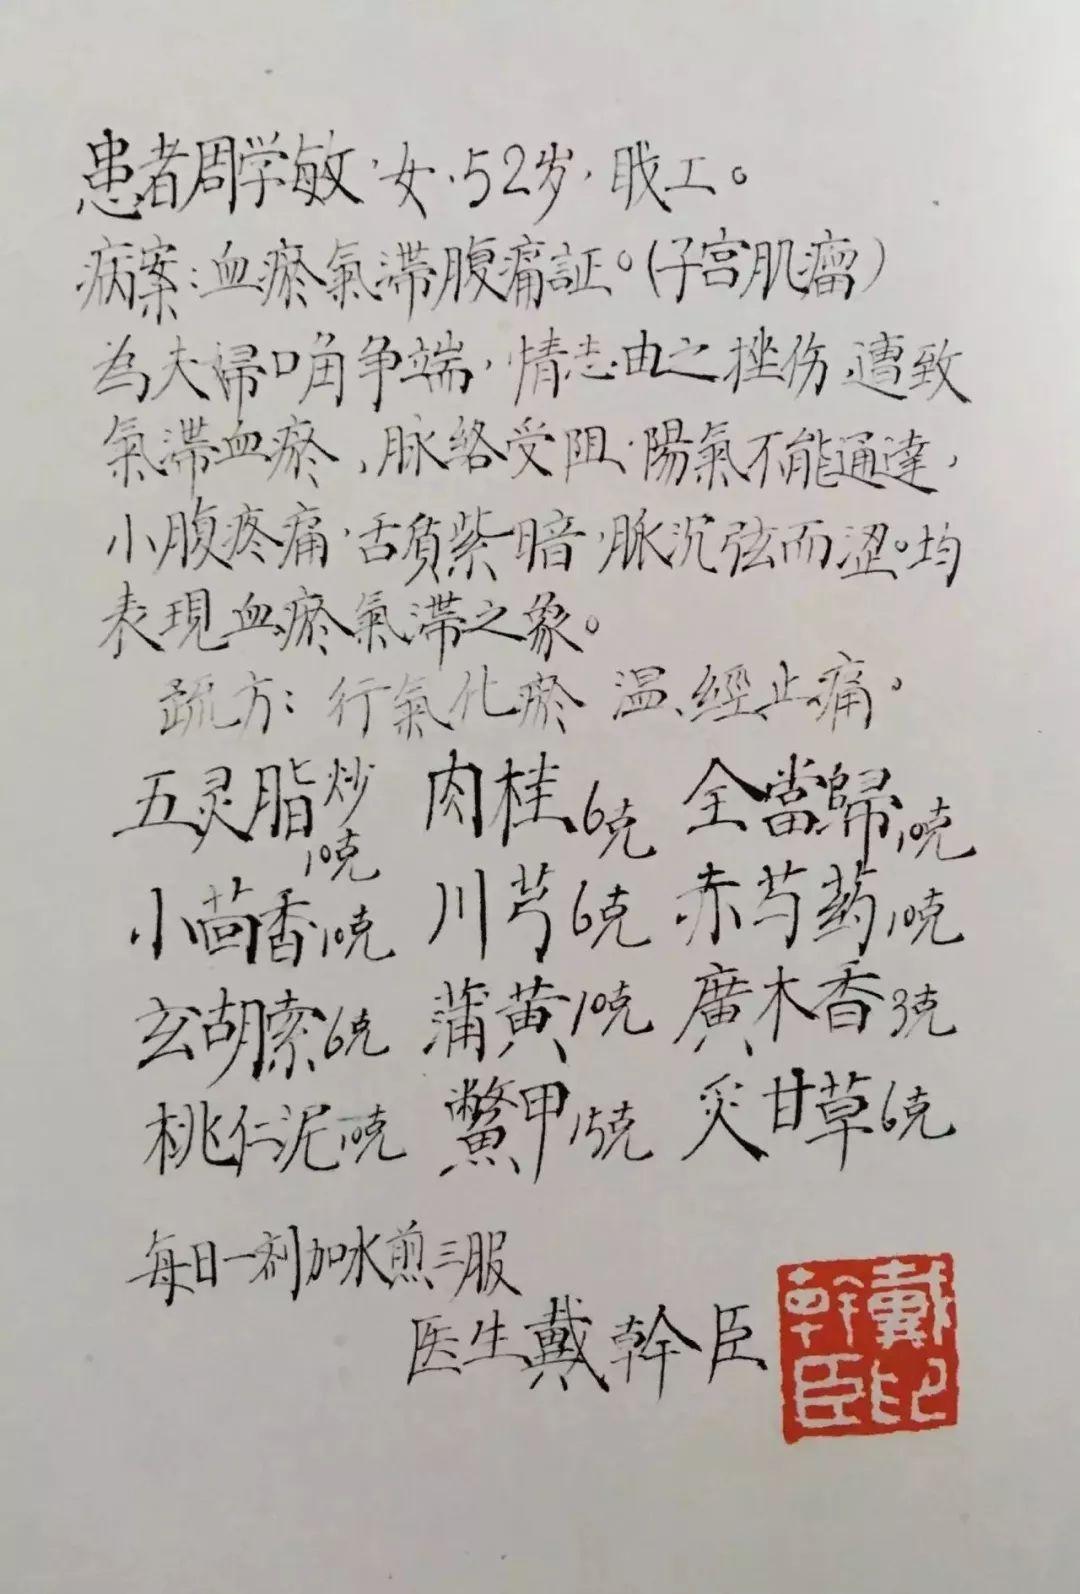 患者周学敏，女，52岁，职工。
病案：血瘀氣滞腹痛証。（子宫肌瘤）
为夫婦口角争端，情志由之挫伤，遭致
氣滞血瘀，脉络受阻，陽氣不能通達，
小腹疼痛，舌質紫暗，脉沉弦而涩。均
表現血瘀氣滞之象。
疏方：行氣化瘀 温經止痛。
五灵脂炒10克 肉桂6克 全當歸10克
小茴香10克 川芎6克 赤芍药10克
玄胡索6克 蒲黄10克 廣木香3克
桃仁泥10克 鱉甲15克 炙甘草6克
每日一剂加水煎三服
医生戴幹臣
戴幹臣印